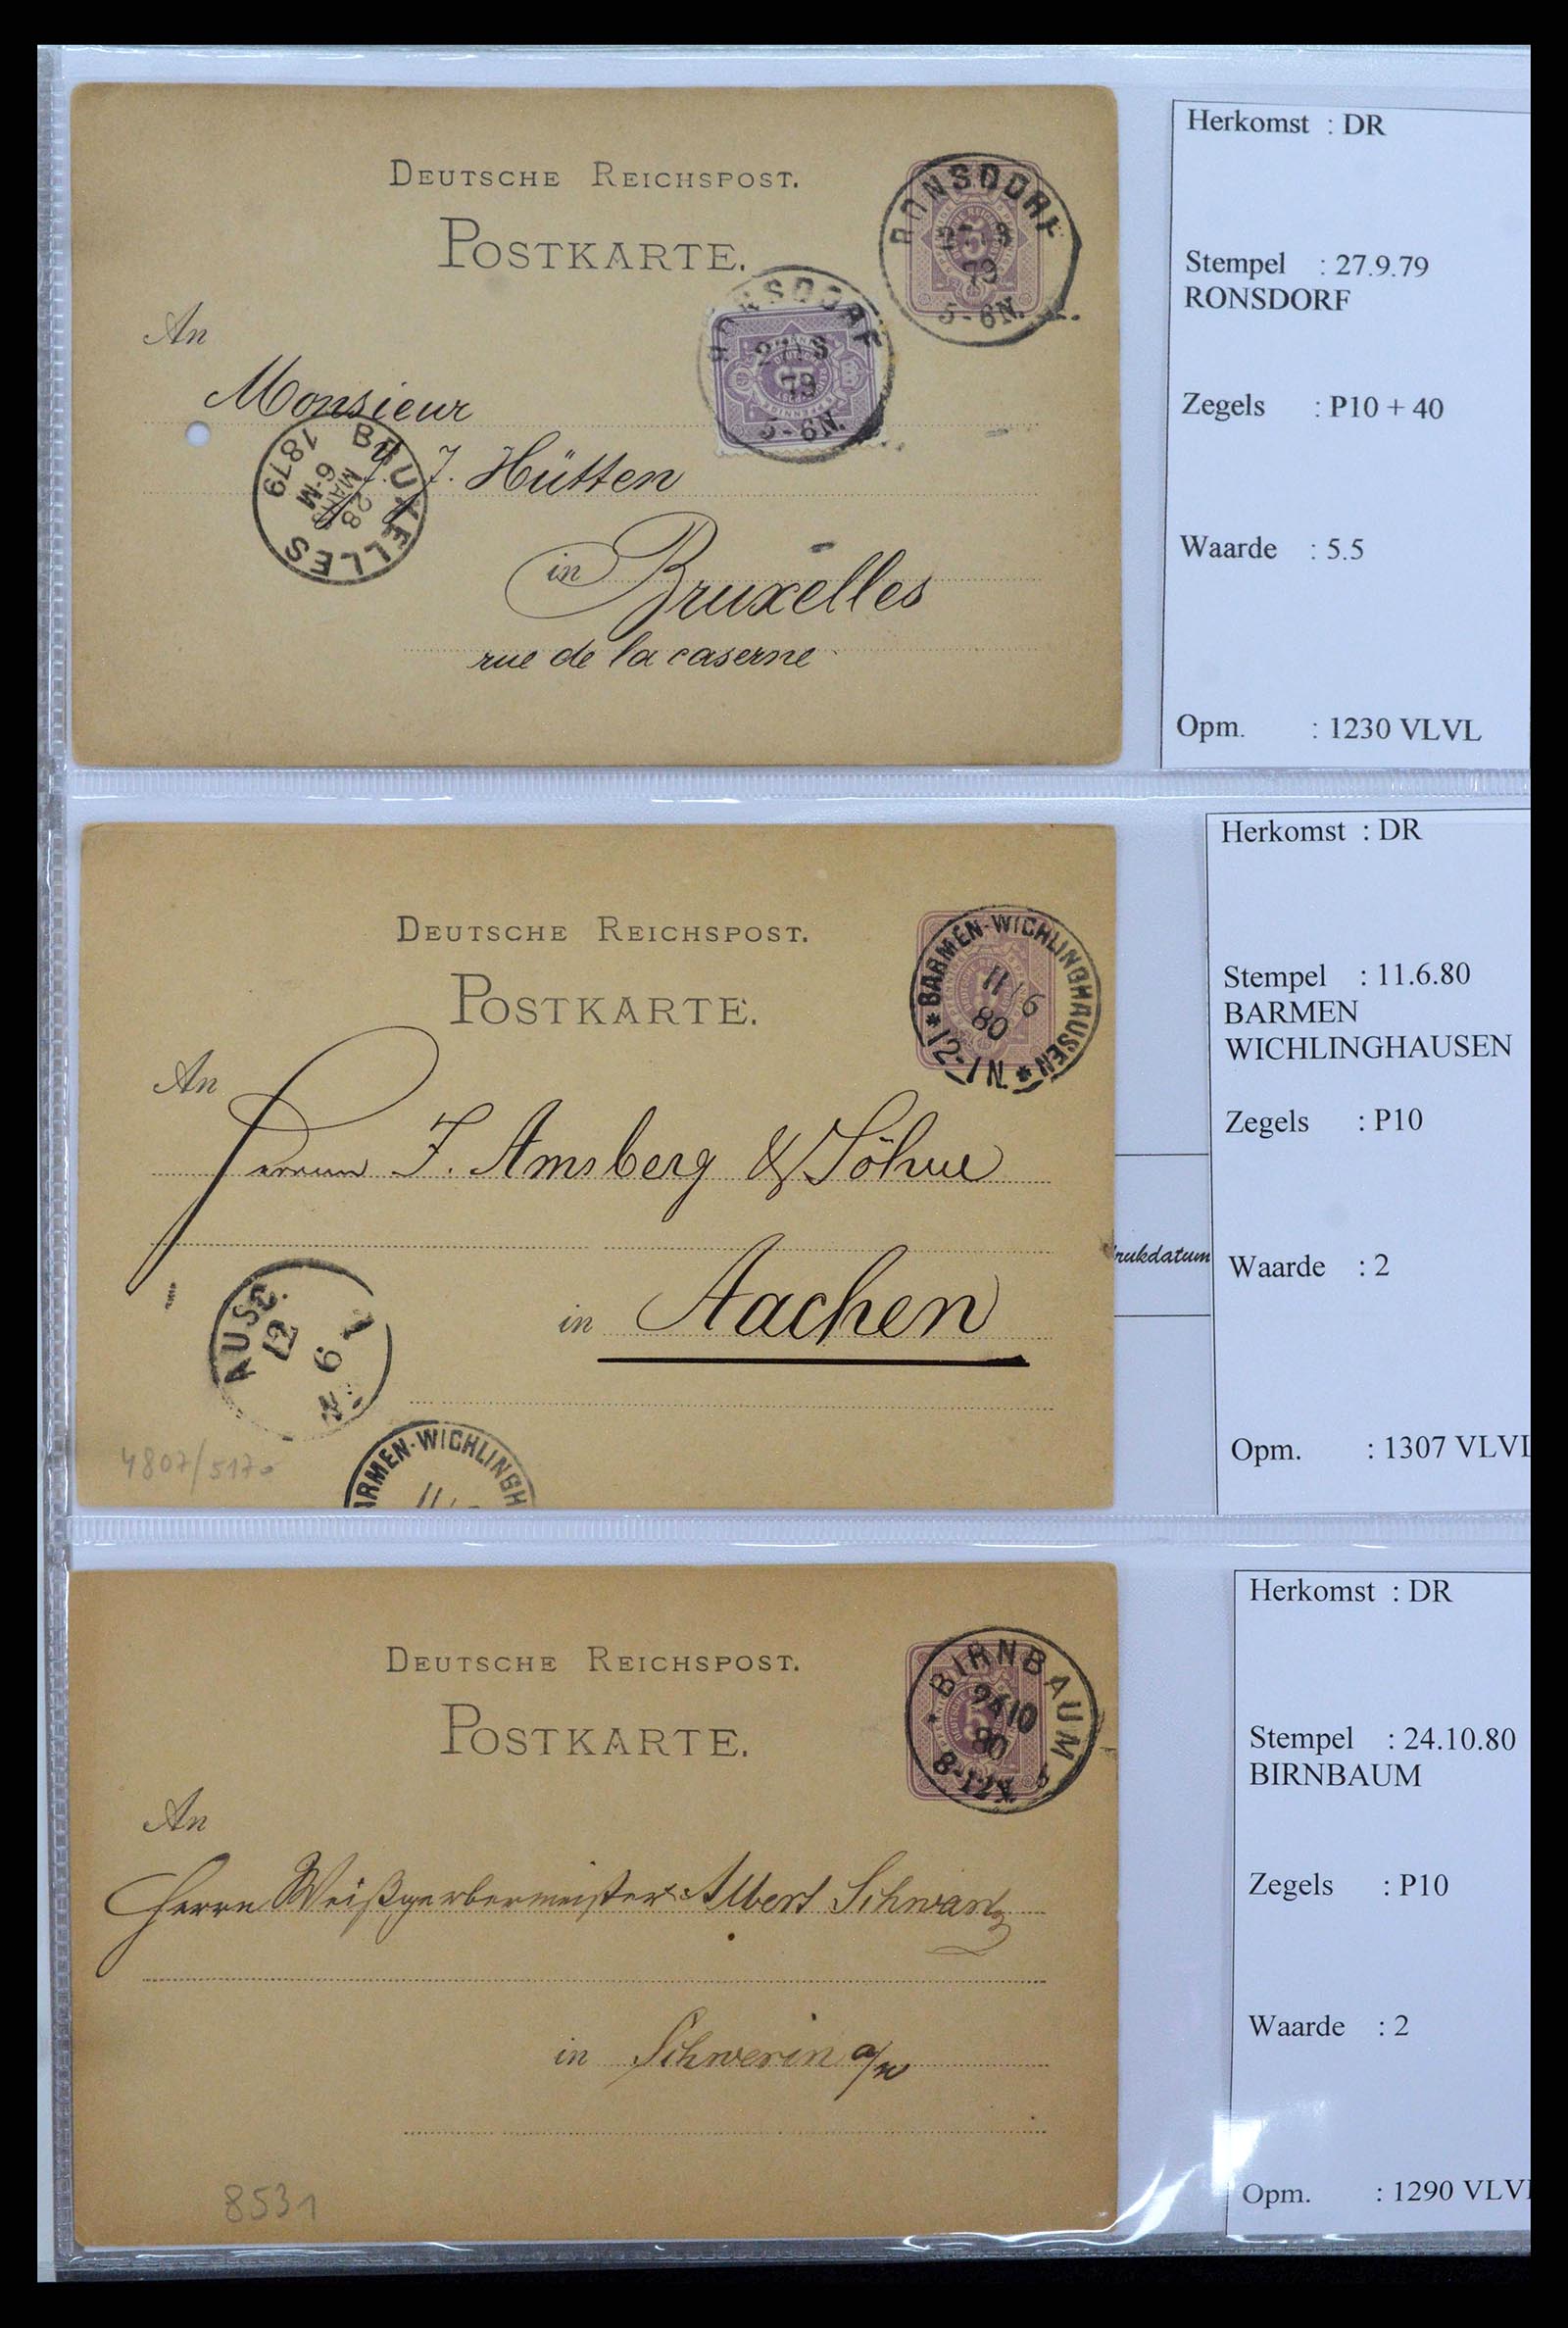 DEUTSCHE REICHSPOST.
POSTKARTE.
RONSDORF
79
5-6N.
RONSDORF
79
5-6N.
An
Monsieur
J. J. Hütten
in Bruxelles
rue de la caserne
BRUXELLES
28
6-M
1879
Herkomst : DR
Stempel : 27.9.79
RONSDORF
Zegels : P10 + 40
Waarde : 5.5
Opm. : 1230 VLVL
DEUTSCHE REICHSPOST.
POSTKARTE.
*BARMEN-WICHLINGHAUSEN*
11/6
80
12-1N.
An
Herren J. Amsberg & Söhne
in Aachen
AUSG.
12
6
4807/5170
ARMEN-WICHLINGH
11/
rukdatum
Herkomst : DR
Stempel : 11.6.80
BARMEN
WICHLINGHAUSEN
Zegels : P10
Waarde : 2
Opm. : 1307 VLVL
DEUTSCHE REICHSPOST.
POSTKARTE.
BIRNBAUM
24/10
80
An
Herrn Weißgerbermeister Albert Schwantz
in Schwerin a/w
8531
Herkomst : DR
Stempel : 24.10.80
BIRNBAUM
Zegels : P10
Waarde : 2
Opm. : 1290 VLVL